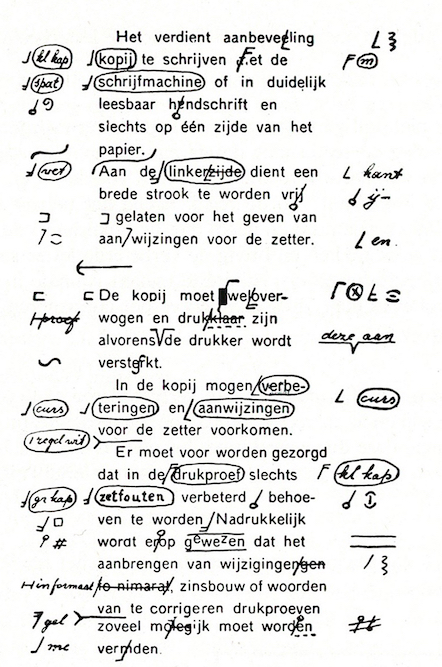 Het verdient aanbeveeling
kl kap kopij te schrijven F.et de F m
spat schrijfmachine of in duidelijk
leesbaar hendschrift en
slechts op één zijde van het
papier.
vet Aan de linkerzijde dient een kant
brede strook te worden vrij ij
gelaten voor het geven van
aan wijzingen voor de zetter. en.
De kopij moet welover-
proef wogen en drukklaar zijn
alvorens de drukker wordt deze aan
versterkt.
In de kopij mogen verbe-
curs teringen en aanwijzingen curs
voor de zetter voorkomen.
1 regel wit
Er moet voor worden gezorgd
dat in de drukproef slechts kl kap
gr kap zetfouten verbeterd behoe-
ven te worden Nadrukkelijk
# wordt erop gewezen dat het
aanbrengen van wijzigingen/gen
, zinsbouw of woorden
van te corrigeren drukproeven
gel zoveel mogelijk moet worden
me vermiden.